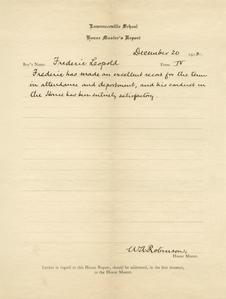 Lawrenceville School
House Master's Report
December 20 191
Boy's Name Frederic Leopold Form IV
Frederic has made an excellent record for the term
in attendance and deportment, and his conduct in
the House has been entirely satisfactory.
House Master.
Letters in regard to this House Report, should be addressed, in the first instance,
to the House Master.